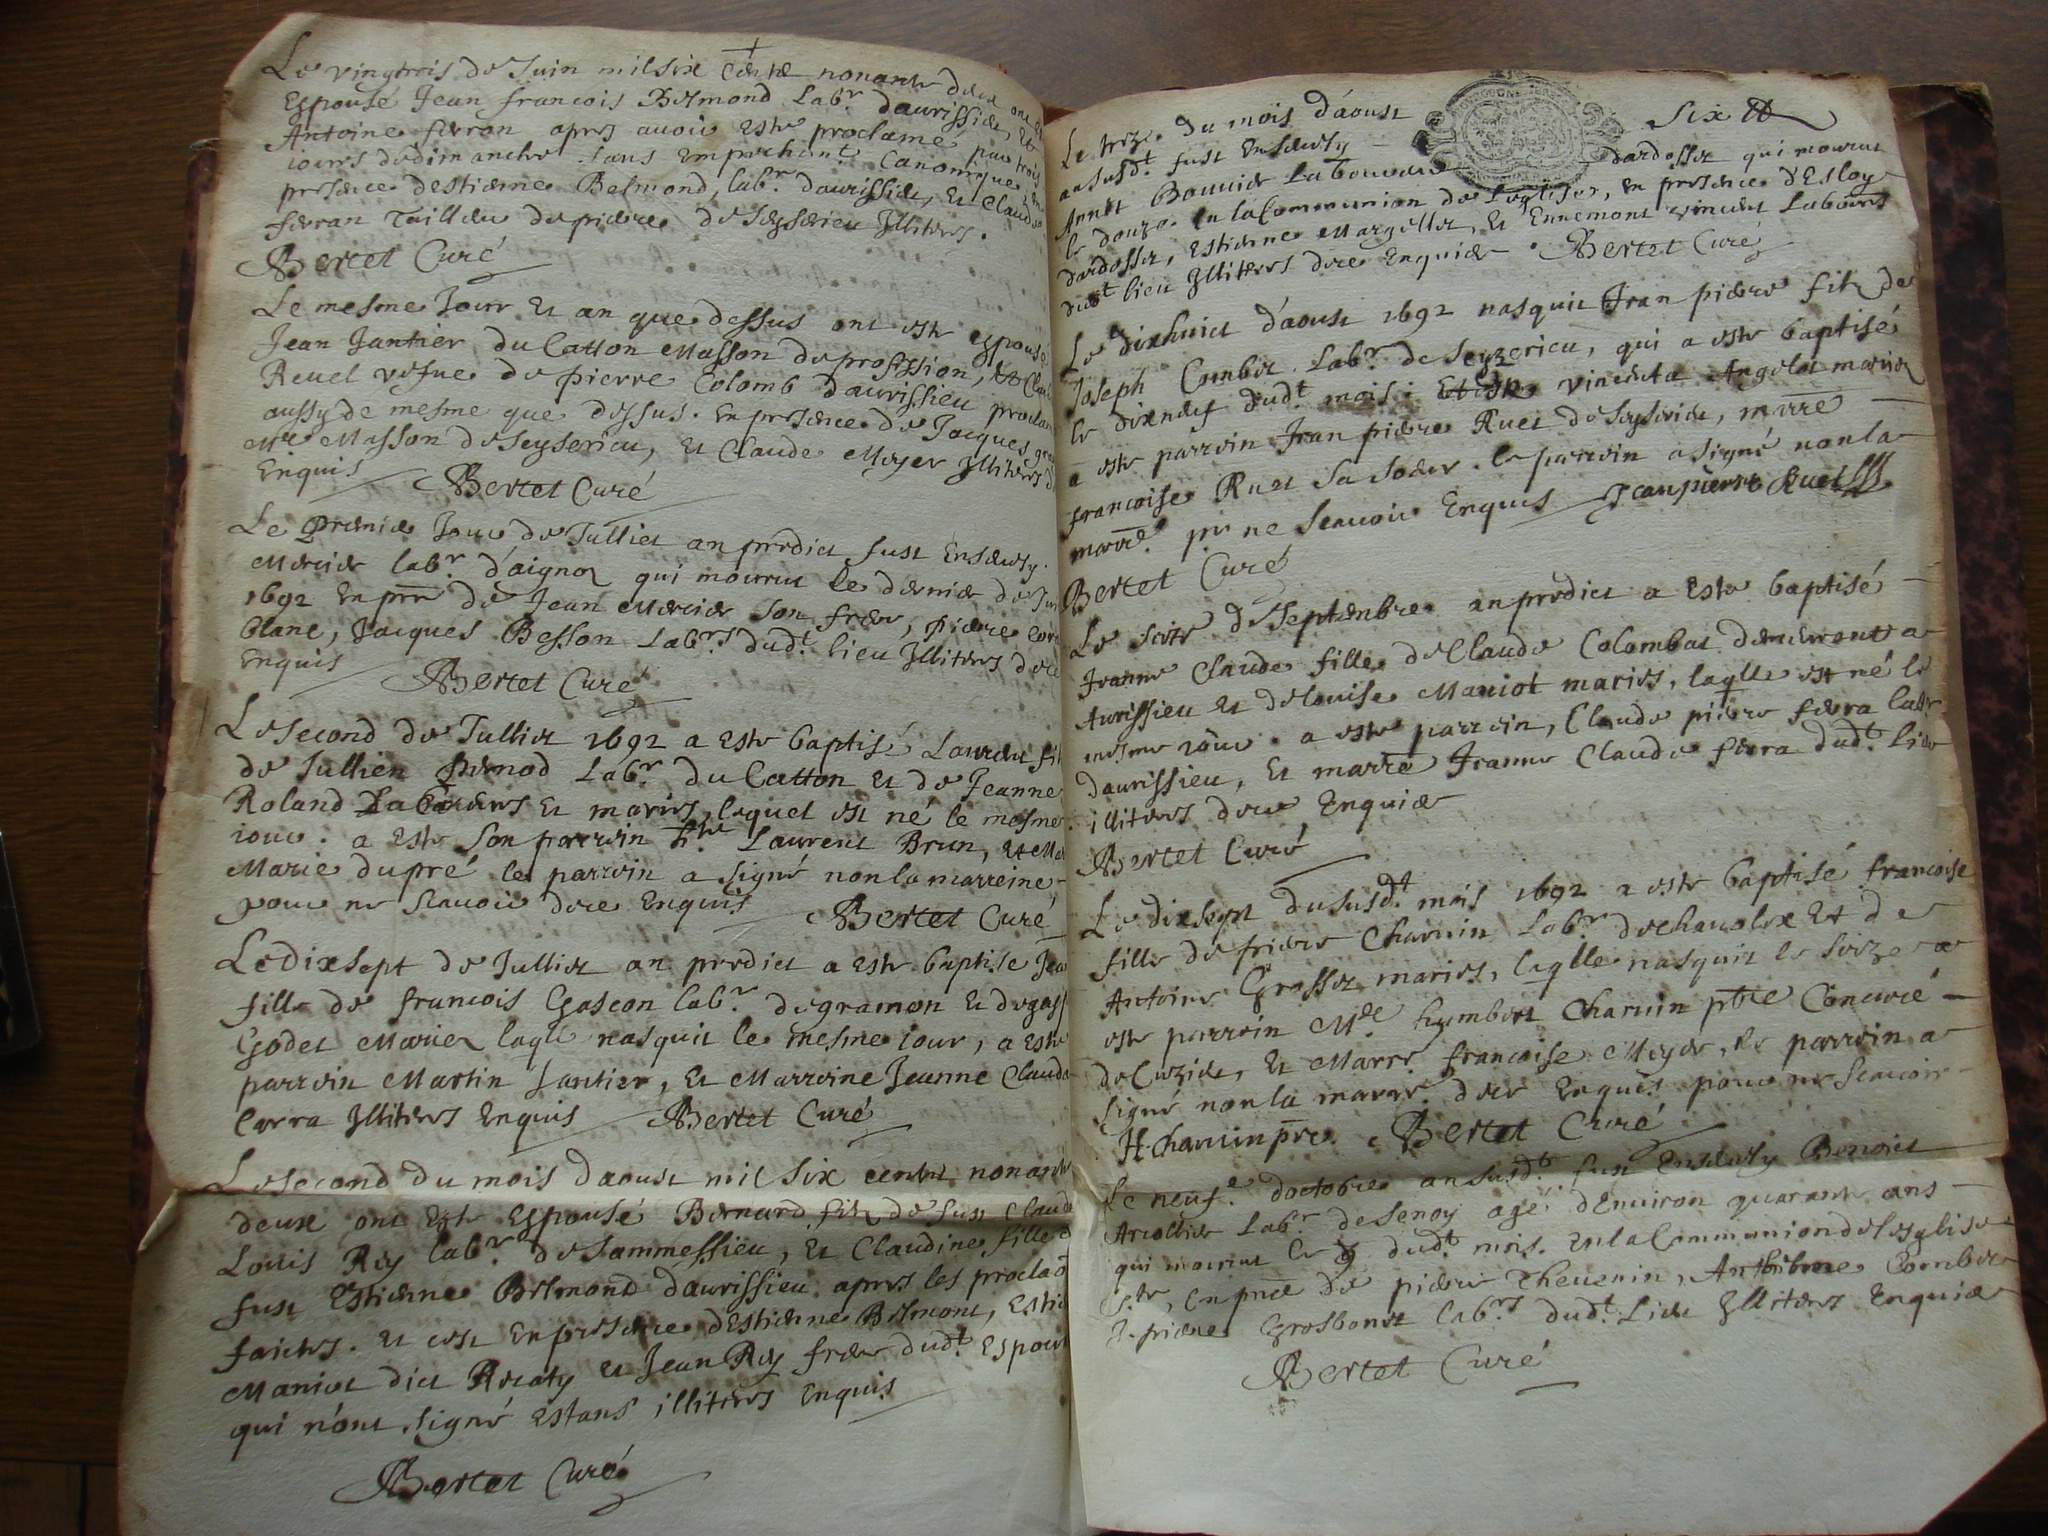 Le vingtrois de Juin mil six cent nonante deux ont
Espousé Jean francois Belmond Labr. daurissieu, Et
Antoine ferran apres auoir Este proclamé par trois
iours de dimanche sans Empechemt. Canonique, en
presence destienne Belmond, labr. daurissieu, Et Claude
ferran Tailleur de pierre de Seyserieu Illiteres.
Bertet Curé
Le mesme Jour Et an que dessus ont este espousé
Jean Jantier du Catton Masson de profession, Et
Reuel vefue de pierre Colomb daurissieu
aussy de mesme que dessus. En presence de Jacques
Me Masson de Seyserieu, Et Claude Meyer Illiteres
Enquis Bertet Curé
Le Premier Jour de Julliet an predict fust Enseuely
Mercier labr. d'aignoz qui mourut le dernier de
1692 En pnce de Jean Mercier son frere, pierre
blanc, Jacques Besson Labrs. dudt. lieu Illiteres
Enquis Bertet Curé
Le second de Julliet 1692 a Este baptisé Laurent
de Jullien pernod Labr. du Catton Et de Jeanne
Roland Laboureurs Et mariés, lequel est né le mesme
iour. a Este son parrein Laurent Brun, Et
Marie dupré le parrein a signé non la marreine
pour ne scauoir de ce Enquis Bertet Curé
Le dixsept de Julliet an predict a Este baptisé
fille de francois Gascon labr. de gramon Et de
Godet Mariez laqlle nasquit le mesme iour, a Este
parrein Martin Jantier, Et Marreine Jeanne Claude
Carra Illiteres Enquis Bertet Curé
Le second du mois daoust mil six cents nonante
deux ont Este Espousé Bernard filz de fust Claude
Louis Rey labr. de Sammessieu, Et Claudine fille
fust Estienne Belmond daurissieu apres les
faictes. Et cest En presence dEstienne Belmont,
Maniot dict Et Jean Rey frere dudt. Espoux
qui n'ont signé Estans illiteres Enquis
Bertet Curé
Le treze du mois d'aoust Six
an susdt. fust Enseuely
Annet Bouuier Laboureur dardosset qui mourut
le douze En la Communion de Leglise, En presence dEsloy
dardosset, Estienne Margellet, Et Ennemont vincent Laboureurs
dudt lieu Illiteres de ce Enquis Bertet Curé
Le dixhuict d'aoust 1692 nasquit Jean pierre filz de
Joseph Combet Labr. de Seyzerieu, qui a este baptisé
le dixneuf dudt. mois. Et de vincenta Angelot mariez
a este parrein Jean pierre Ruet de Seyserieu, marre
francoise Ruet sa soeur. le parrein a signé non la
marre. pr ne scauoir Enquis Jeanpierre Ruet
Bertet Curé
Le seize de Septembre an predict a Este baptisé
Jeanne Claude fille de Claude Colombat demeurant a
Aurissieu Et de louise Maniot mariés, laqlle est né le
mesme iour. a este parrein, Claude pierre ferra labr
daurissieu, Et marre Jeanne Claude ferra dudt. lieu
illiteres de ce Enquis
Bertet Curé
Le dixsept du susdt. mois 1692 a este baptisé francoise
fille de pierre Charuin Labr. de Et de
Antoine Grosset mariés, laqlle nasquit le seize a
este parrein humbert Charuin ptre Concuré
de Cuzieu, Et Marre francoise Meyer, le parrein a
signé non la marre de ce Enquis pour ne scauoir
H. Charuin pre. Bertet Curé
Le neufe. doctobre an susdt. fust Enseuely Benoict
labr. de Senoy agé dEnuiron quarante ans
qui mourut le 9 dudt. mois. En la Communion de lesglise
Ste, En pnce de pierre Theuenin, Anthelme Combet
J. pierre Grosbonet labrs dudt. Lieu Illiteres Enquis
Bertet Curé